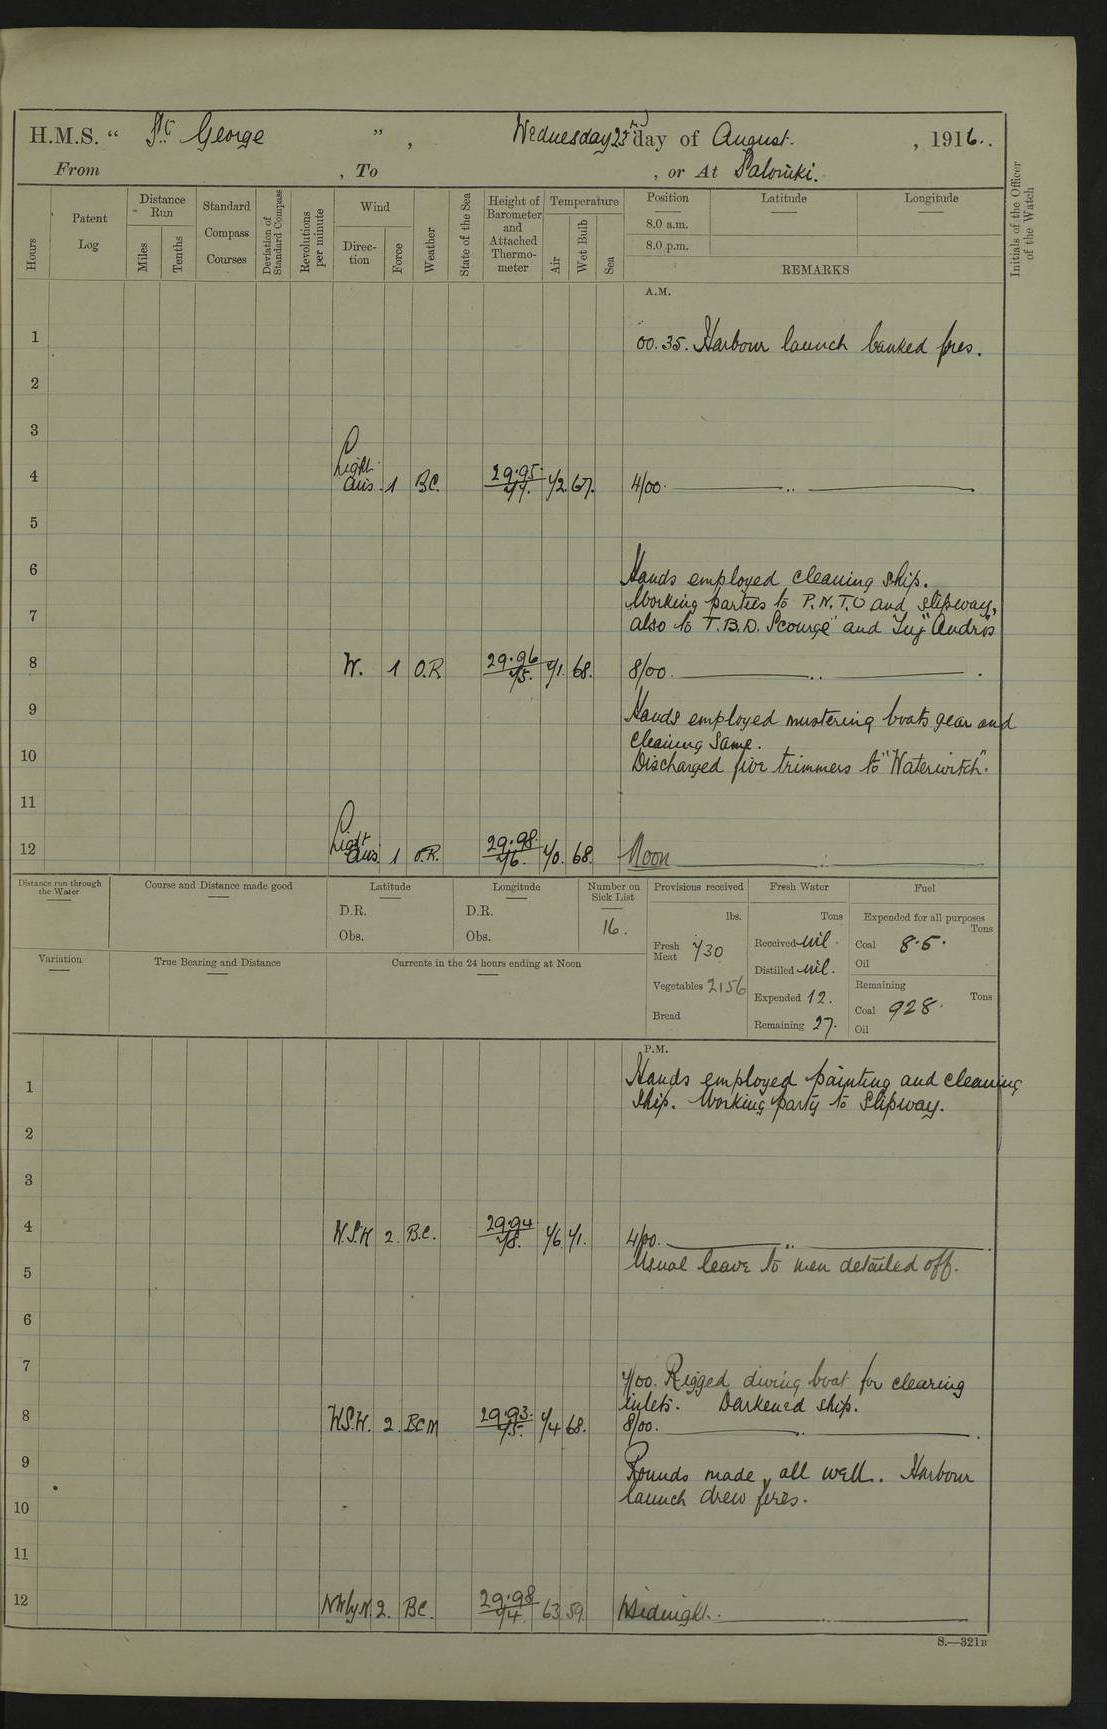 H.M.S. " St. George " , Wednesday 23rd day of August. , 1916.
From , To , or At Salonuki.
Hours
Patent Log
Distance Run
Miles
Tenths
Standard Compass Courses
Deviation of Standard Compass
Revolutions per minute
Wind
Direction
Force
Weather
State of the Sea
Height of Barometer and Attached Thermometer
Temperature
Air
Wet Bulb
Sea
Position Latitude Longitude
8.0 a.m.
8.0 p.m.
REMARKS
Initials of the Officer of the Watch
A.M.
1 00.35. Harbour launch banked fires.
2
3
4 Light airs. 1 BC. 29.95 77. 72. 67. 4/00. ..
5
6 Hands employed cleaning ship.
Working parties to P.N.T.O and slipway,
7 also to T.B.D. Scourge and Tug "Andros
8 W. 1 O.R 29.96 75. 71. 68. 8/00. ..
9 Hands employed mustering boats gear and
cleaning same.
10 Discharged five trimmers to "Waterwitch".
11
12 Light airs. 1 O.R. 29.98. 76. 70. 68. Noon
Distance run through the Water
Course and Distance made good
Latitude
D.R.
Obs.
Longitude
D.R.
Obs.
Number on Sick List
16.
Provisions received
lbs.
Fresh Meat 730
Vegetables 2156
Bread
Fresh Water
Tons
Received nil.
Distilled nil.
Expended 12.
Remaining 27.
Fuel
Expended for all purposes
Tons
Coal 8.5.
Oil
Remaining
Tons
Coal 928.
Oil
Variation
True Bearing and Distance
Currents in the 24 hours ending at Noon
P.M.
1 Hands employed painting and cleaning
ship. Working party to Slipway.
2
3
4 W.S.W 2. B.C. 29.94 78. 76 71. 4/00. ..
5 Usual leave to men detailed off.
6
7 7/00. Rigged diving boat for clearing
inlets. Darkened ship.
8 W.S.W. 2. BCM 29.93. 75. 74 68. 8/00. ..
9 Rounds made, all well. Harbour
10 launch drew fires.
11
12 NWbyN. 2. BC. 29.98 74. 63 59. Midnight. ..
S.—321B